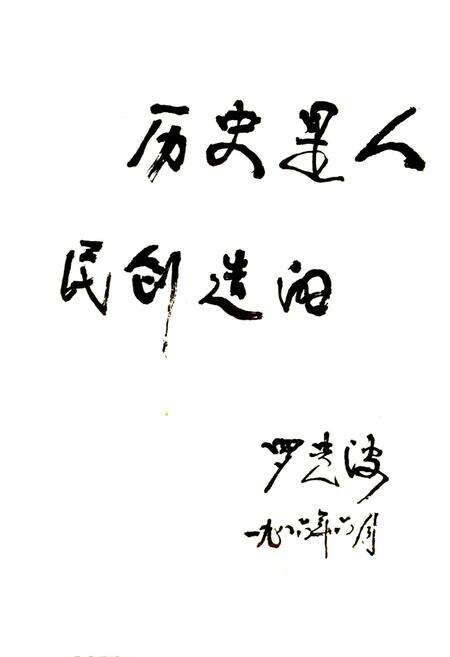 历史是人
民创造的
罗光波
一九八六年六月